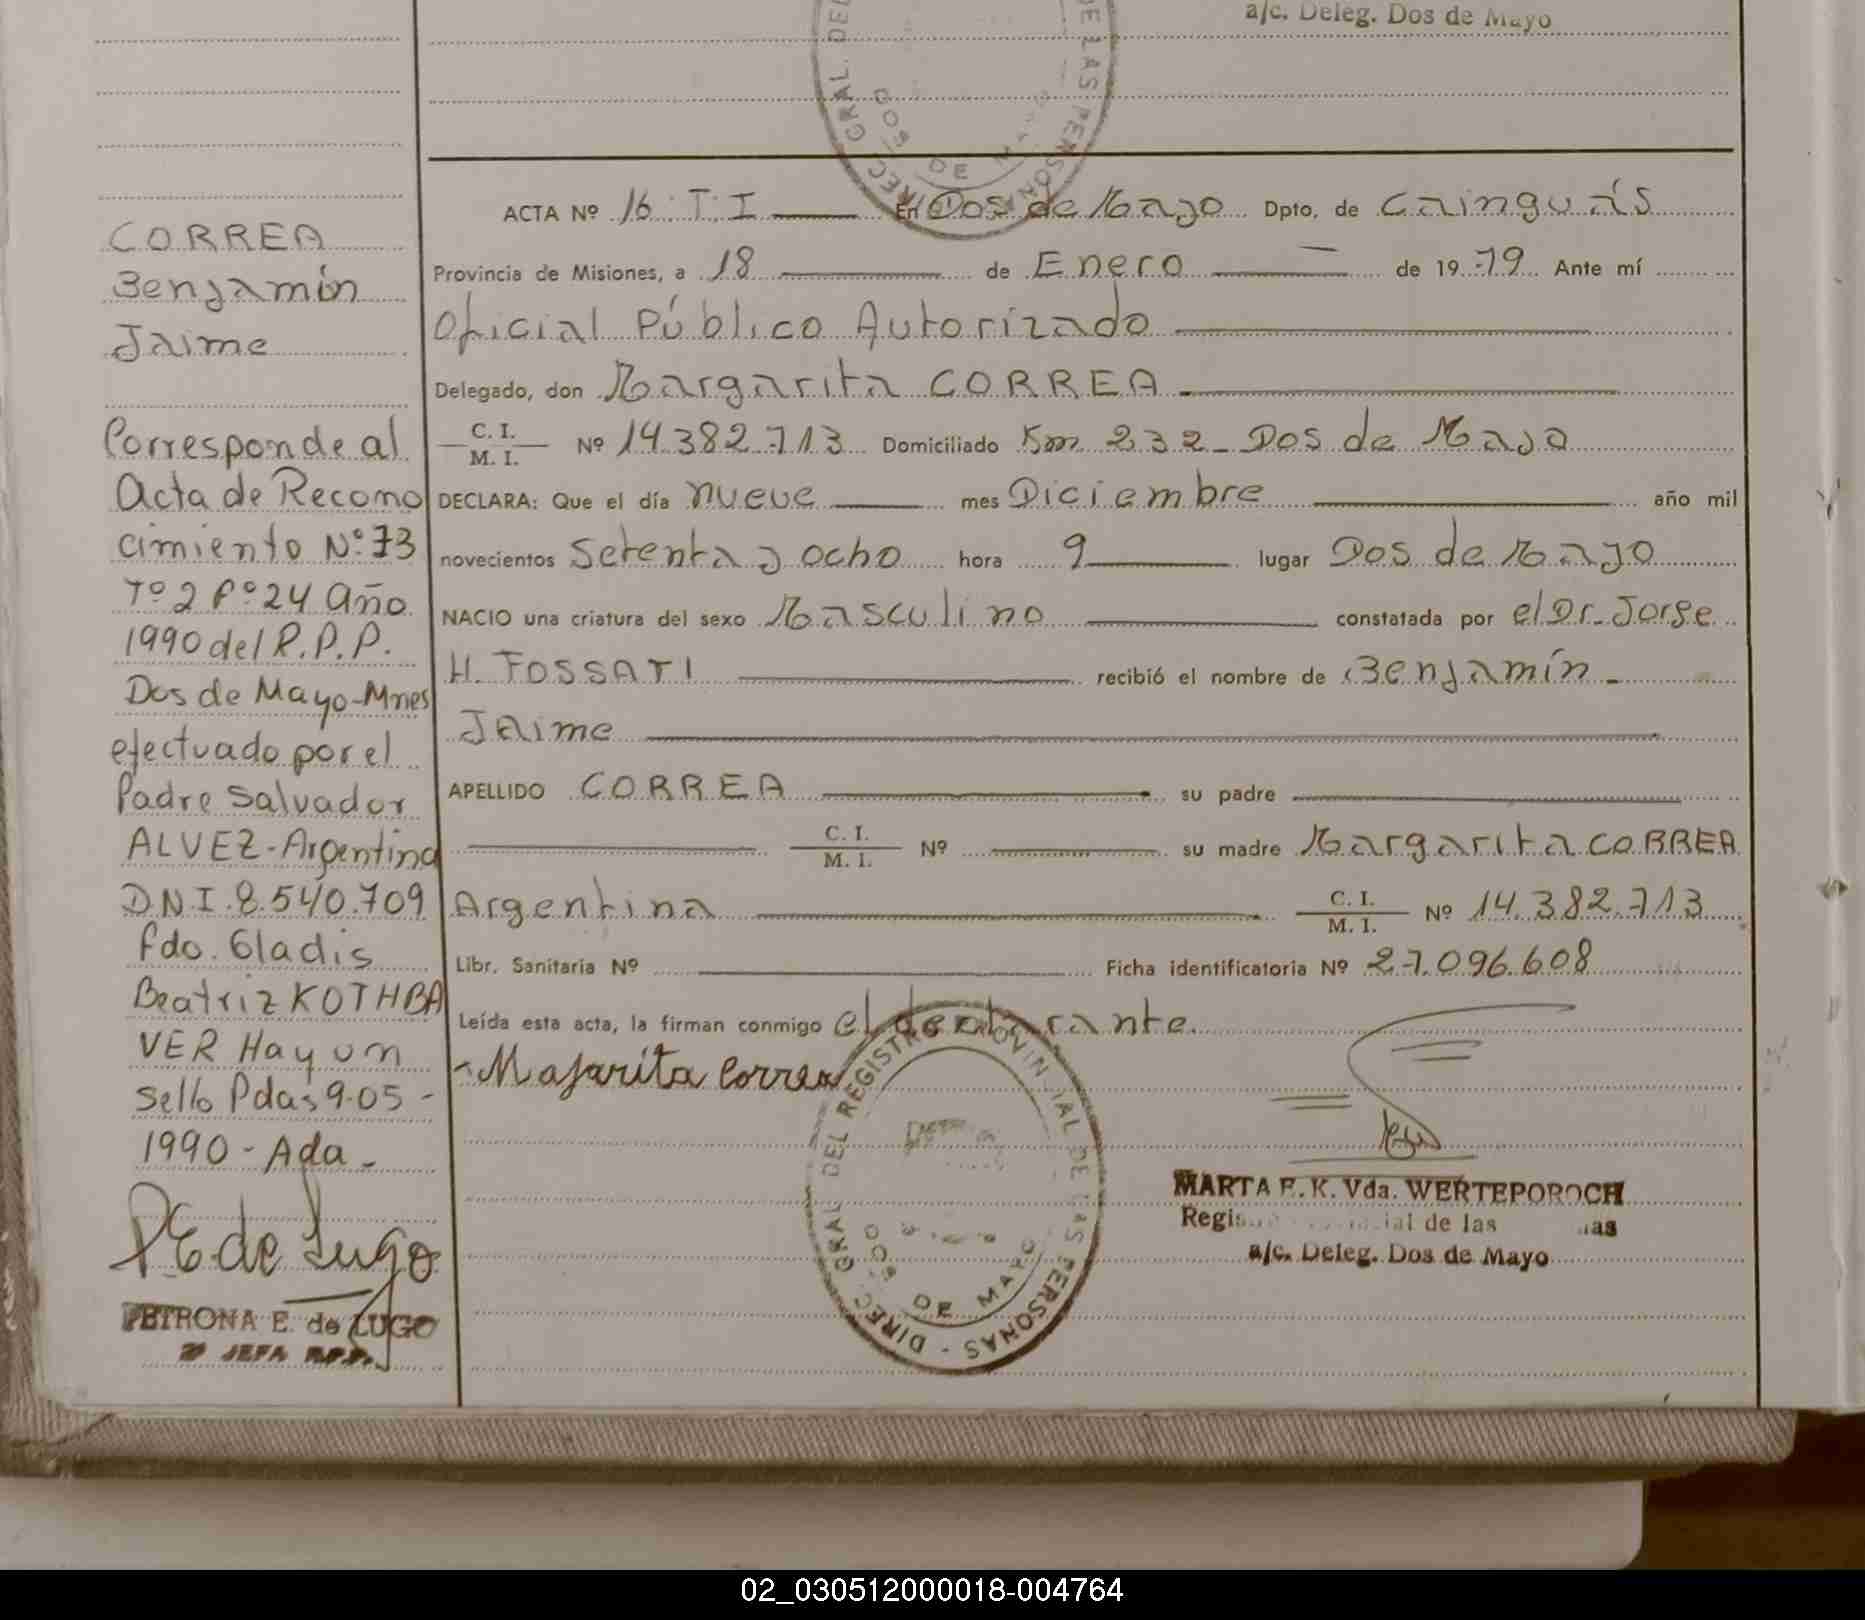 a/c. Deleg. Dos de Mayo
DIREC. GRAL. DEL DE LAS PERSONAS
DOS DE MAYO
CORREA
Benjamín
Jaime
Corresponde al
Acta de Recono
cimiento Nº 73
Tº 2 Fº 24 Año
1990 del R.P.P.
Dos de Mayo-Mnes
efectuado por el
Padre Salvador
ALVEZ-Argentino
DNI.8.540.709
Fdo. Gladis
Beatriz KOTHBA
VER Hay un
sello Pdas 9-05-
1990 - Ada -
PE de Lugo
PETRONA E. de LUGO
JEFA R.P.P.
ACTA Nº 16 T.I En Dos de Mayo Dpto. de Cainguás
Provincia de Misiones, a 18 de Enero de 19 79 Ante mí
Oficial Público Autorizado
Delegado, don Margarita CORREA
C. I. / M. I. Nº 14.382.713 Domiciliado Km 232 - Dos de Mayo
DECLARA: Que el día nueve mes Diciembre año mil
novecientos Setenta y ocho hora 9 lugar Dos de Mayo
NACIO una criatura del sexo Masculino constatada por el Dr. Jorge
H. FOSSATI recibió el nombre de Benjamín -
Jaime
APELLIDO CORREA su padre
C. I. / M. I. Nº su madre Margarita CORREA
Argentina C. I. / M. I. Nº 14.382.713
Libr. Sanitaria Nº Ficha identificatoria Nº 27.096.608
Leída esta acta, la firman conmigo el declarante.
Majarita Correa
DIREC. GRAL. DEL REGISTRO PROVINCIAL DE LAS PERSONAS
DOS DE MAYO
MARTA E. K. Vda. WERTEPOROCH
de las
a/c. Deleg. Dos de Mayo
02_030512000018-004764